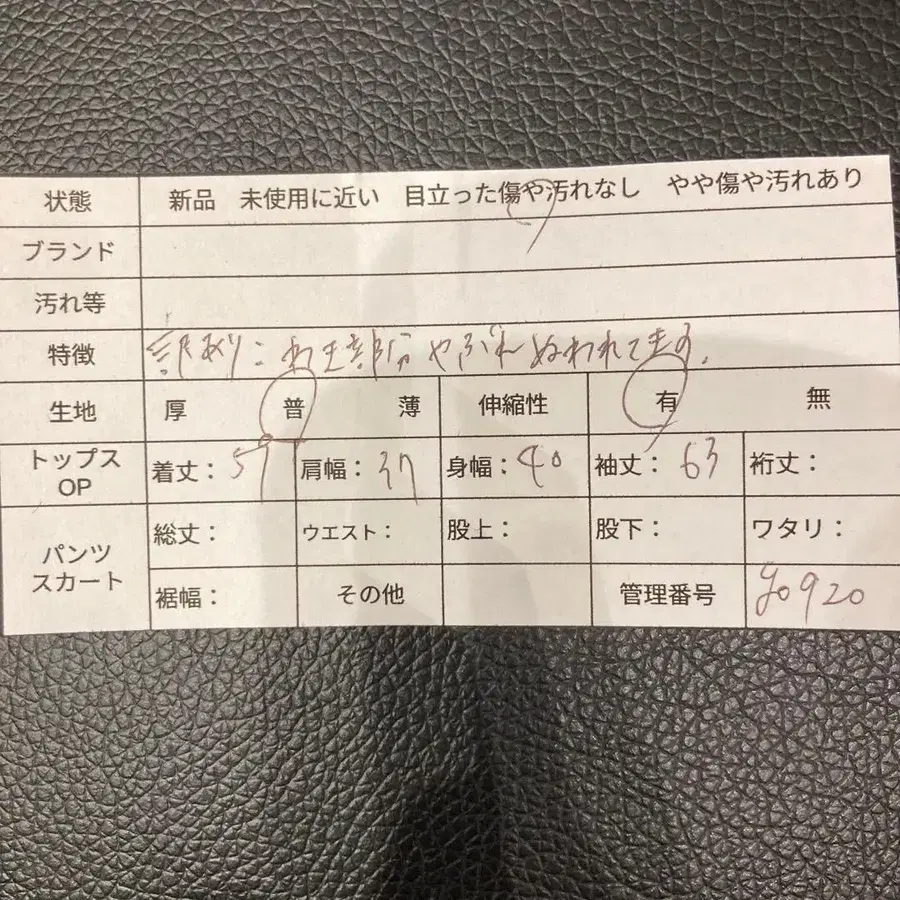 状態 新品 未使用に近い 目立った傷や汚れなし やや傷や汚れあり
ブランド
汚れ等
特徴 訳あり:わき部分やぶれぬわれてます。
生地 厚 普 薄 伸縮性 有 無
トップス OP 着丈:57 肩幅:37 身幅:40 袖丈:63 裄丈:
パンツ スカート 総丈: ウエスト: 股上: 股下: ワタリ:
裾幅: その他 管理番号 yo920